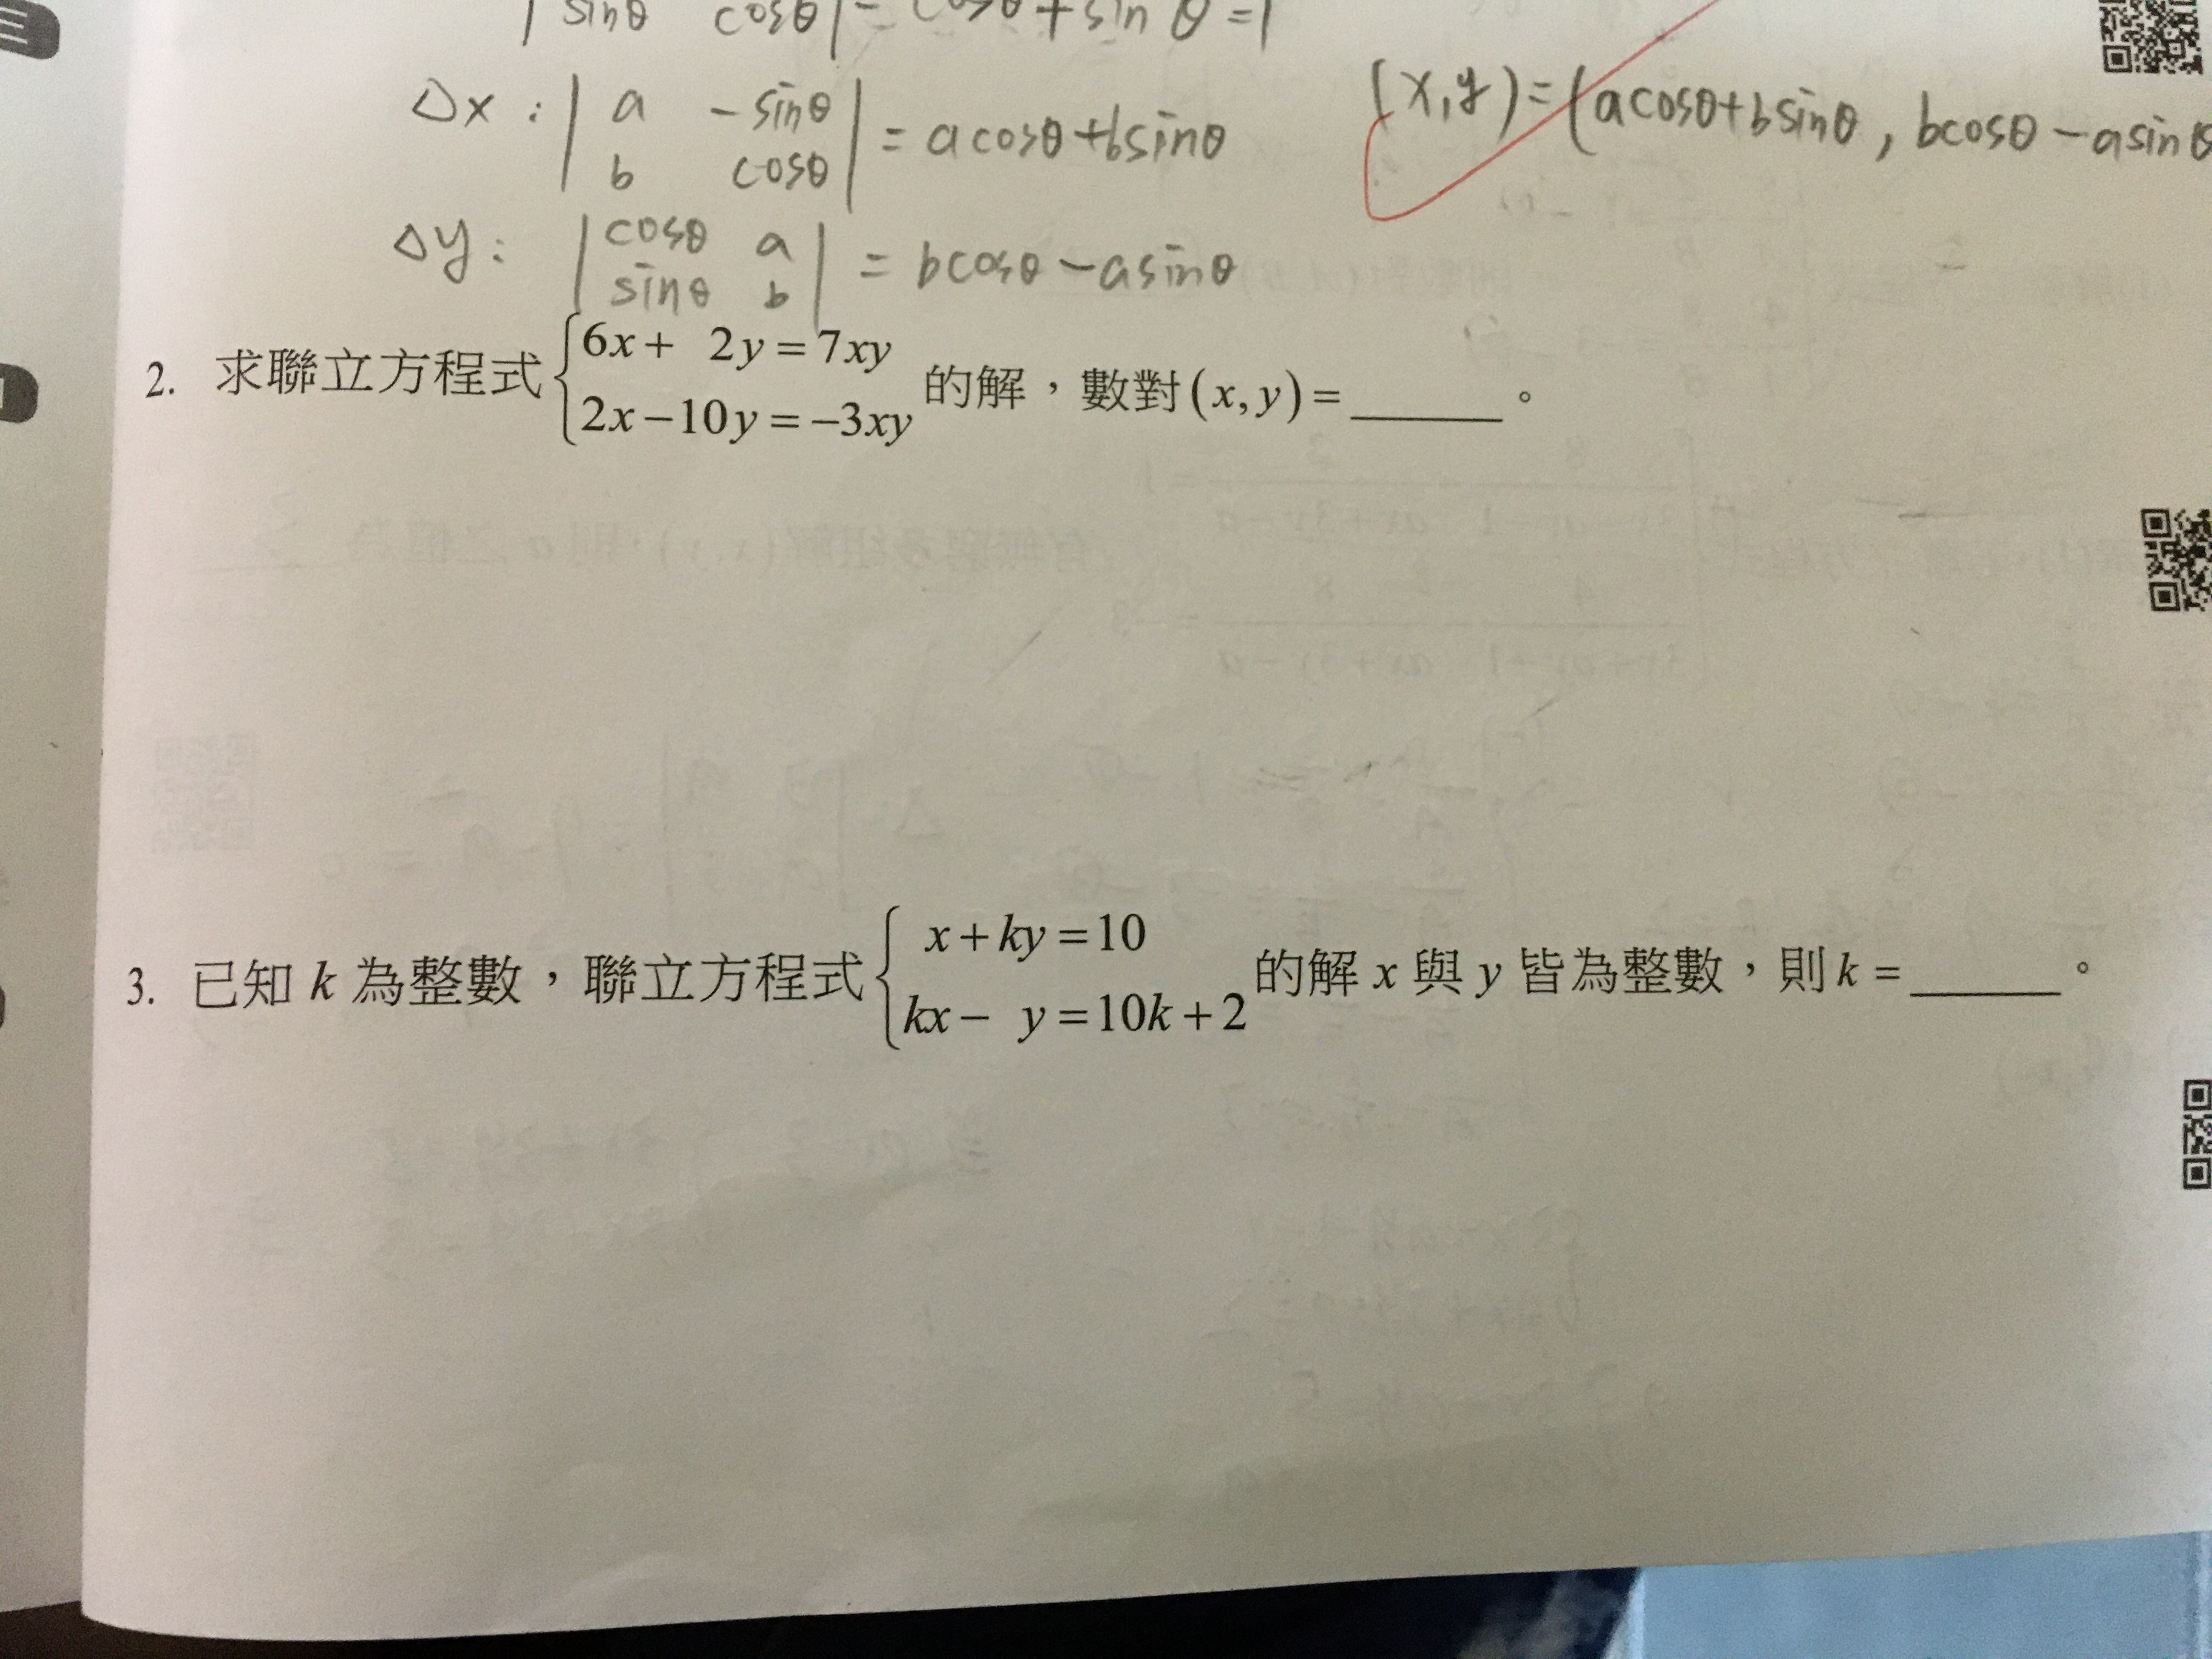 | sinθ cosθ | = cosθ + sinθ = 1
Δx : | a -sinθ | = acosθ+bsinθ
| b cosθ |
(x,y)=(acosθ+bsinθ, bcosθ-asinθ
Δy : | cosθ a | = bcosθ-asinθ
| sinθ b |
2. 求聯立方程式 { 6x+ 2y=7xy
2x-10y=-3xy 的解，數對(x,y)=______。
3. 已知 k 為整數，聯立方程式 { x+ky=10
kx- y=10k+2 的解 x 與 y 皆為整數，則 k =______。